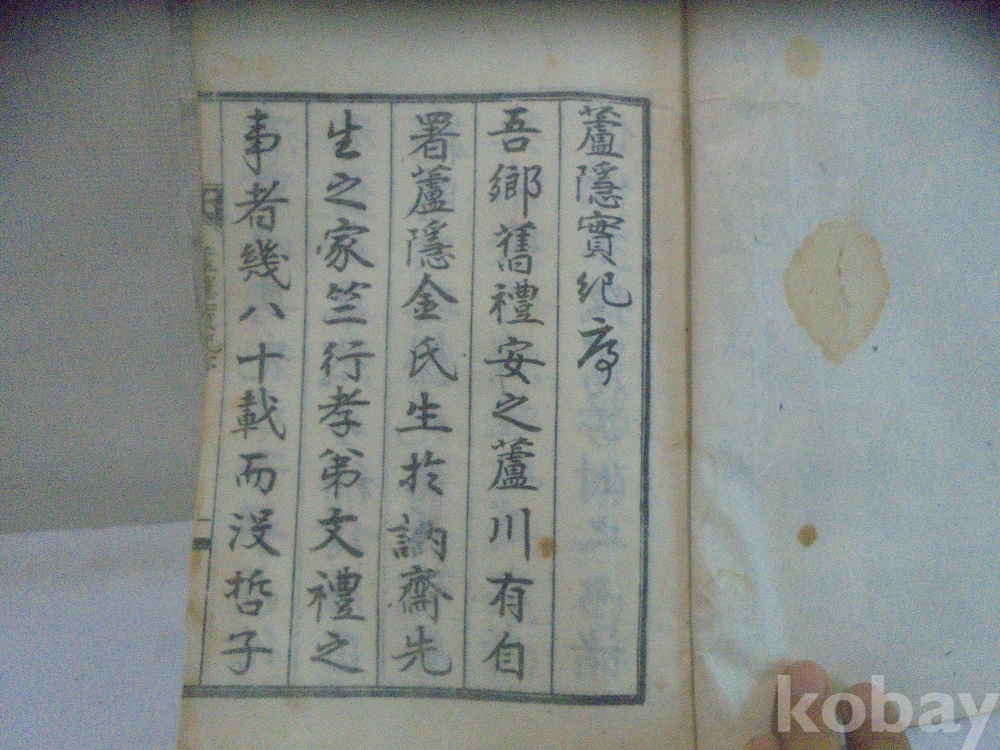 蘆隱實紀序
吾鄉舊禮安之蘆川有自
署蘆隱金氏生於訥齋先
生之家竺行孝弟文禮之
事者幾八十載而没哲子
kobay